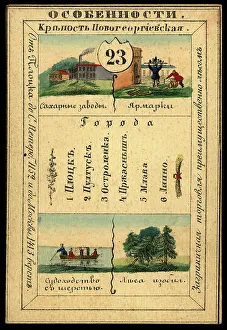 ОСОБЕННОСТИ.
Крѣпость Новогеоргіевская.
23
Сахарные заводы.
Ярмарки
Города
1 Плоцкъ.
2 Пултускъ.
3 Остроленка.
4 Праснышъ.
5 Млава
6 Липно.
Судоходство
съ шерстью.
Лѣса
Отъ Плоцка до С. Петерб. 1052 и до Москвы 1413 верстъ
Заграничная торговля преимущественно лѣсомъ